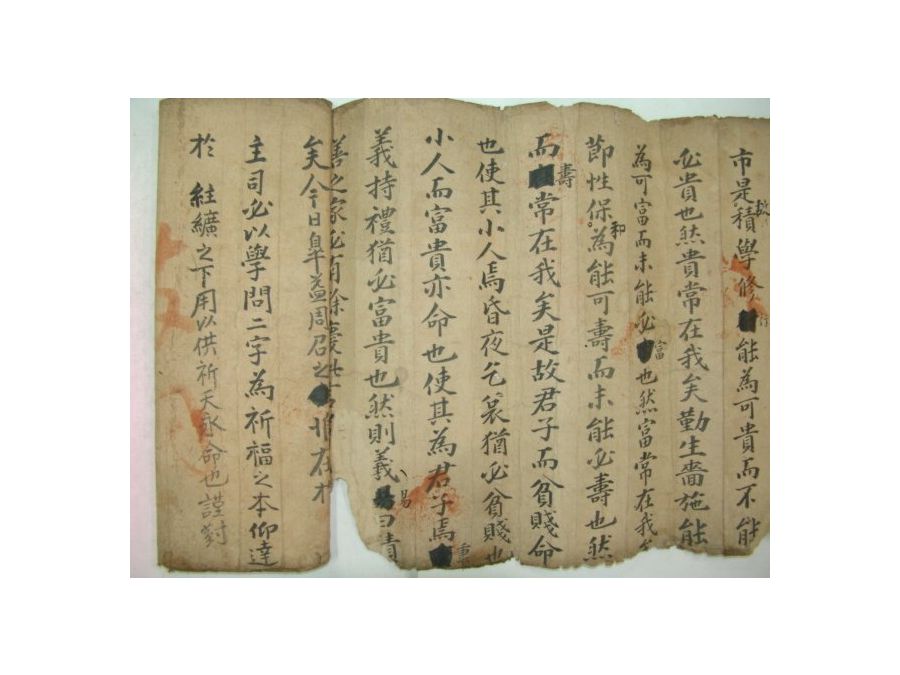 市是積學修能為可貴而不能
必貴也然貴常在我矣勤生嗇施能
為可富而未能必富也然富常在我矣
節性保和為能可壽而未能必壽也然
而壽常在我矣是故君子而貧賤命
也使其小人焉昏夜乞哀猶必貧賤也
小人而富貴亦命也使其為君子焉
義持禮猶必富貴也然則義易曰積
善之家必有餘慶此 惟在
矣人今日 周召之
主司必以學問二字為祈福之本仰達
於 絓纊之下用以供祈天永命也謹對